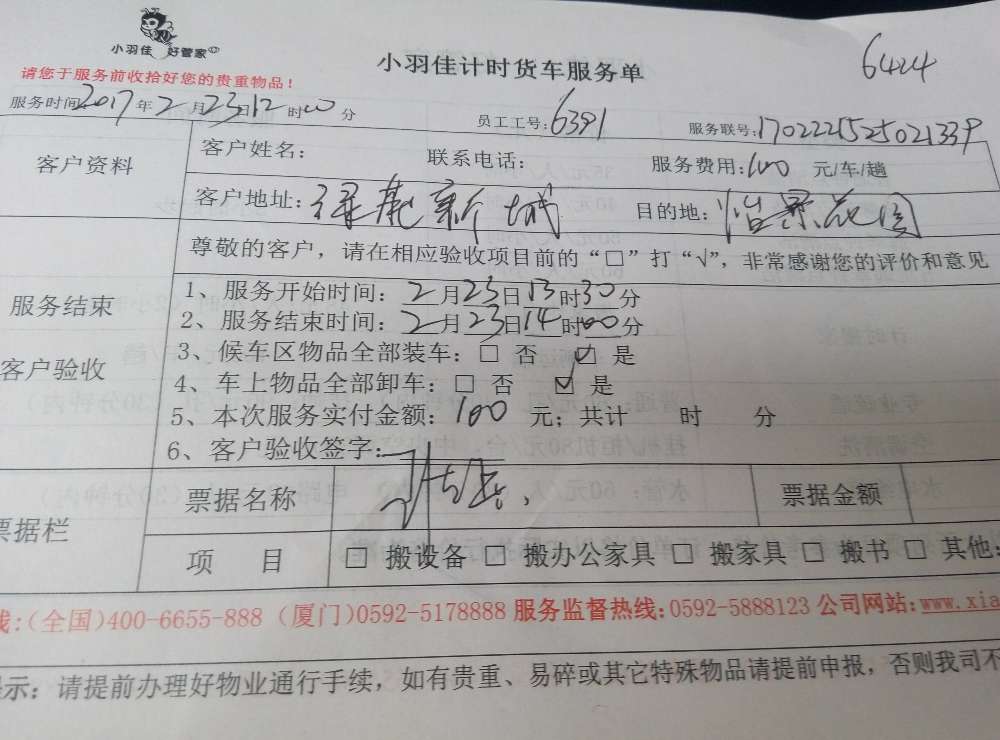 小羽佳 好管家
小羽佳计时货车服务单
6424
请您于服务前收拾好您的贵重物品!
服务时间:2017年2月23日12时00分 员工工号:6391 服务联号:1702221525021339
客户资料
客户姓名: 联系电话: 服务费用:100 元/车/趟
客户地址: 新城 目的地:怡景花园
尊敬的客户,请在相应验收项目前的“□”打“√”,非常感谢您的评价和意见
服务结束
客户验收
1、服务开始时间:2月23日13时30分
2、服务结束时间:2月23日14时00分
3、候车区物品全部装车:□ 否 ☑ 是
4、车上物品全部卸车:□ 否 ☑ 是
5、本次服务实付金额:100 元;共计 时 分
6、客户验收签字:
票据栏
票据名称 票据金额
项 目 □ 搬设备 □ 搬办公家具 □ 搬家具 □ 搬书 □ 其他:
线:(全国)400-6655-888 (厦门)0592-5178888 服务监督热线:0592-5888123 公司网站:www.xia
示:请提前办理好物业通行手续,如有贵重、易碎或其它特殊物品请提前申报,否则我司不